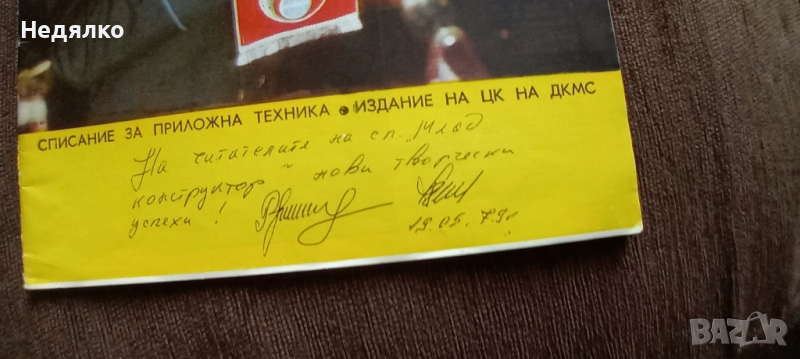 Недялко
СПИСАНИЕ ЗА ПРИЛОЖНА ТЕХНИКА • ИЗДАНИЕ НА ЦК НА ДКМС
На читателите на сп. Млад
конструктор - нови творчески
успехи!
19.05.79г
BAZAR